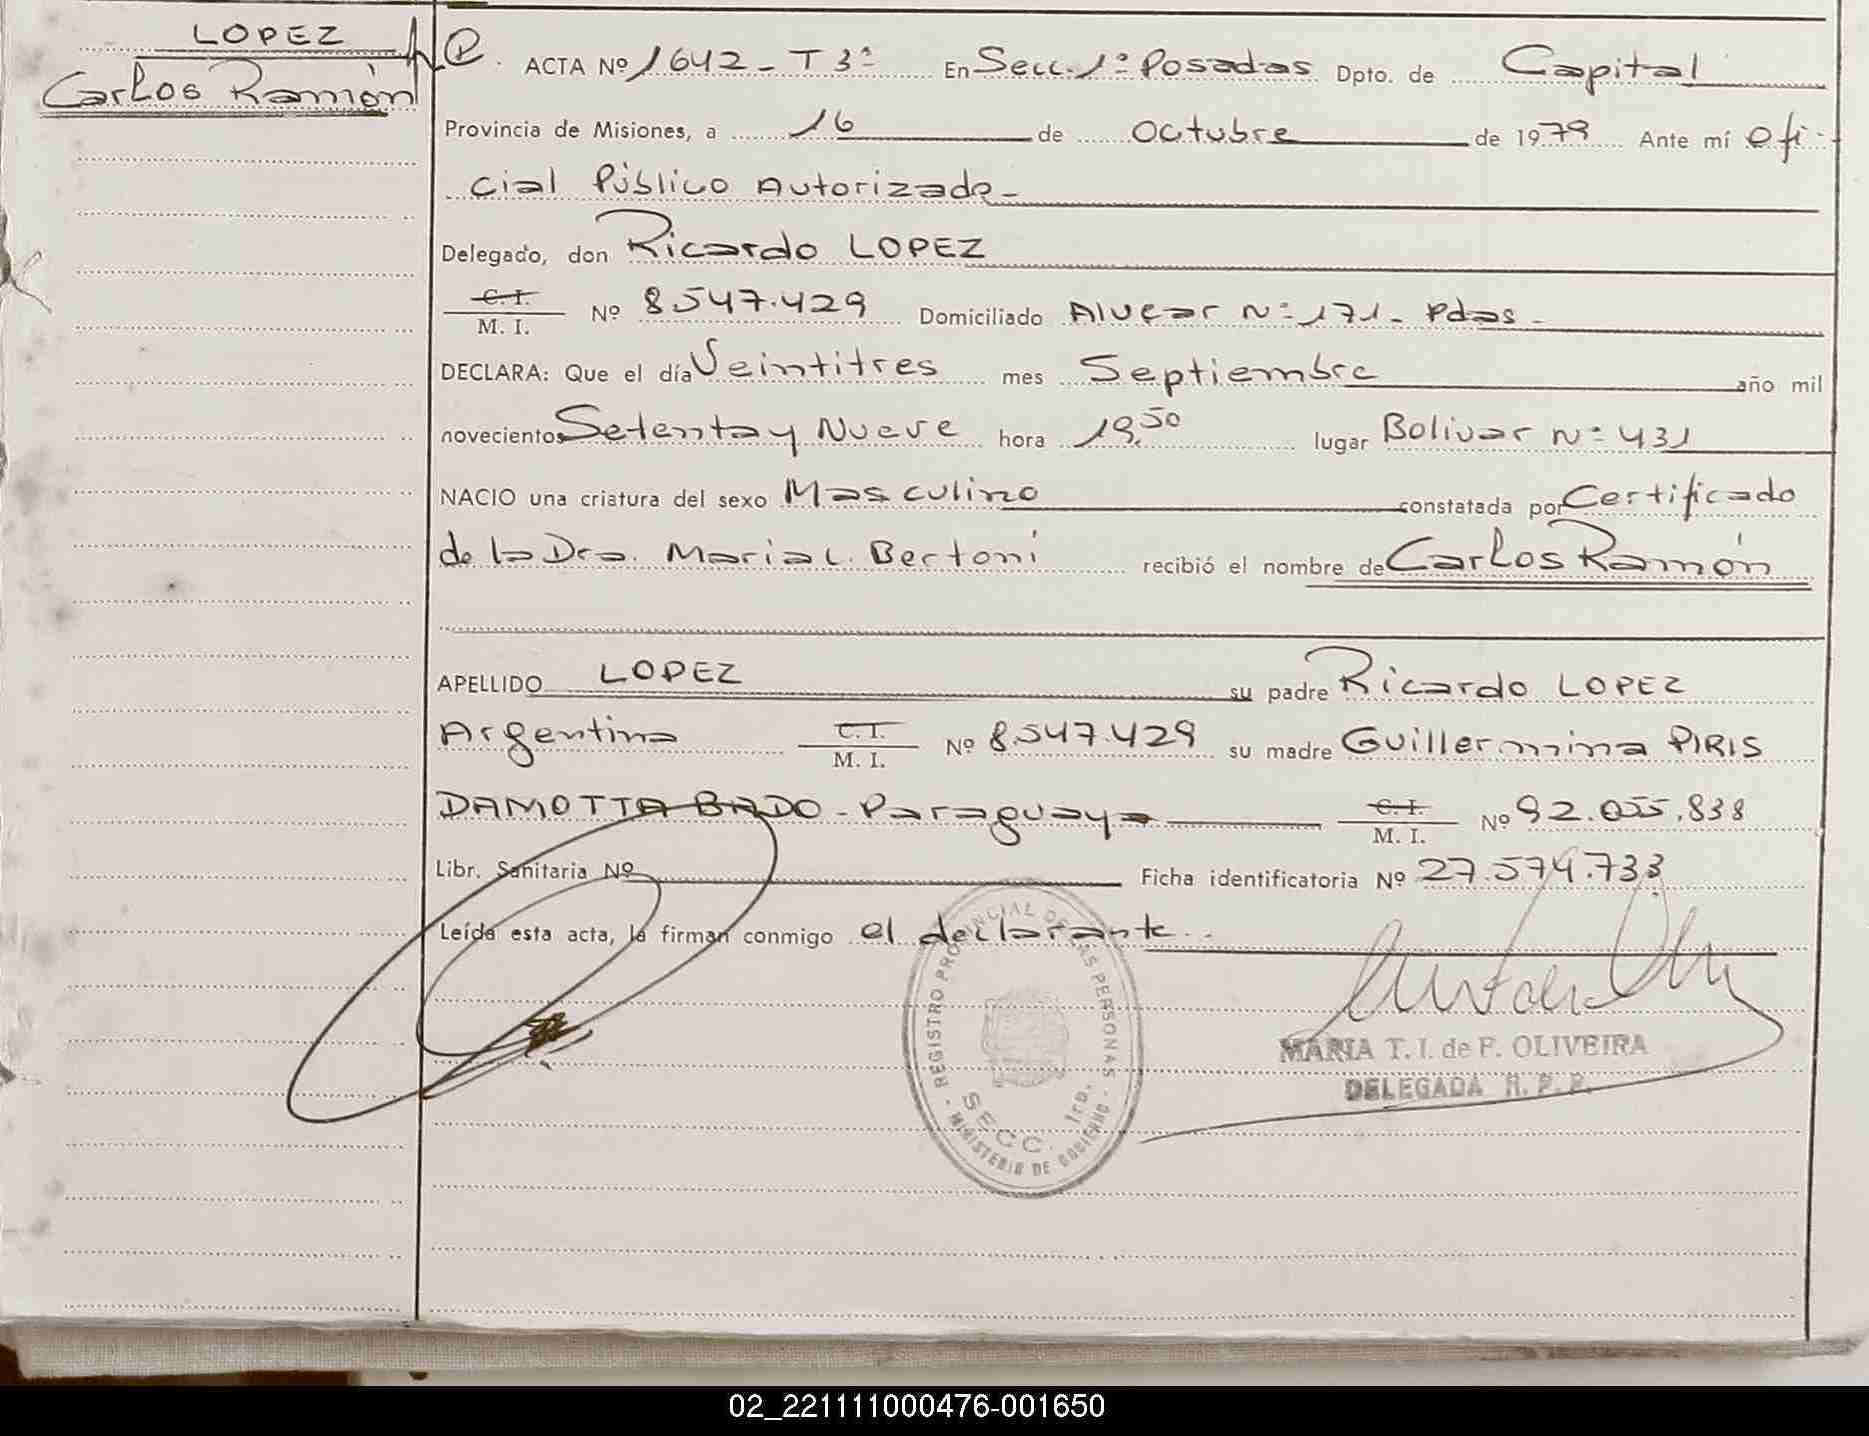 LOPEZ
Carlos Ramón
ACTA Nº 1642 - T 3º En Secc. 1º Posadas Dpto. de Capital
Provincia de Misiones, a 16 de octubre de 1979 Ante mí Ofi-
cial Público Autorizado -
Delegado, don Ricardo LOPEZ
C.I. M. I. Nº 8.547.429 Domiciliado Alvear Nº 171 - Pdas -
DECLARA: Que el día Veintitres mes Septiembre año mil
novecientos Setenta y Nueve hora 19,50 lugar Bolivar Nº 431
NACIO una criatura del sexo Masculino constatada por Certificado
de la Dra. Maria L. Bertoni recibió el nombre de Carlos Ramón
APELLIDO LOPEZ su padre Ricardo LOPEZ
Argentino C.I. M. I. Nº 8.547.429 su madre Guillermina PIRIS
DAMOTTA BADO - Paraguaya C.I. M. I. Nº 92.055.838
Libr. Sanitaria Nº Ficha identificatoria Nº 27.574.733
Leída esta acta, la firman conmigo el declarante -
REGISTRO PROVINCIAL DE LAS PERSONAS
SECC. 1ra.
MINISTERIO DE GOBIERNO
MARIA T. I. de F. OLIVEIRA
DELEGADA R. P. P.
02_221111000476-001650